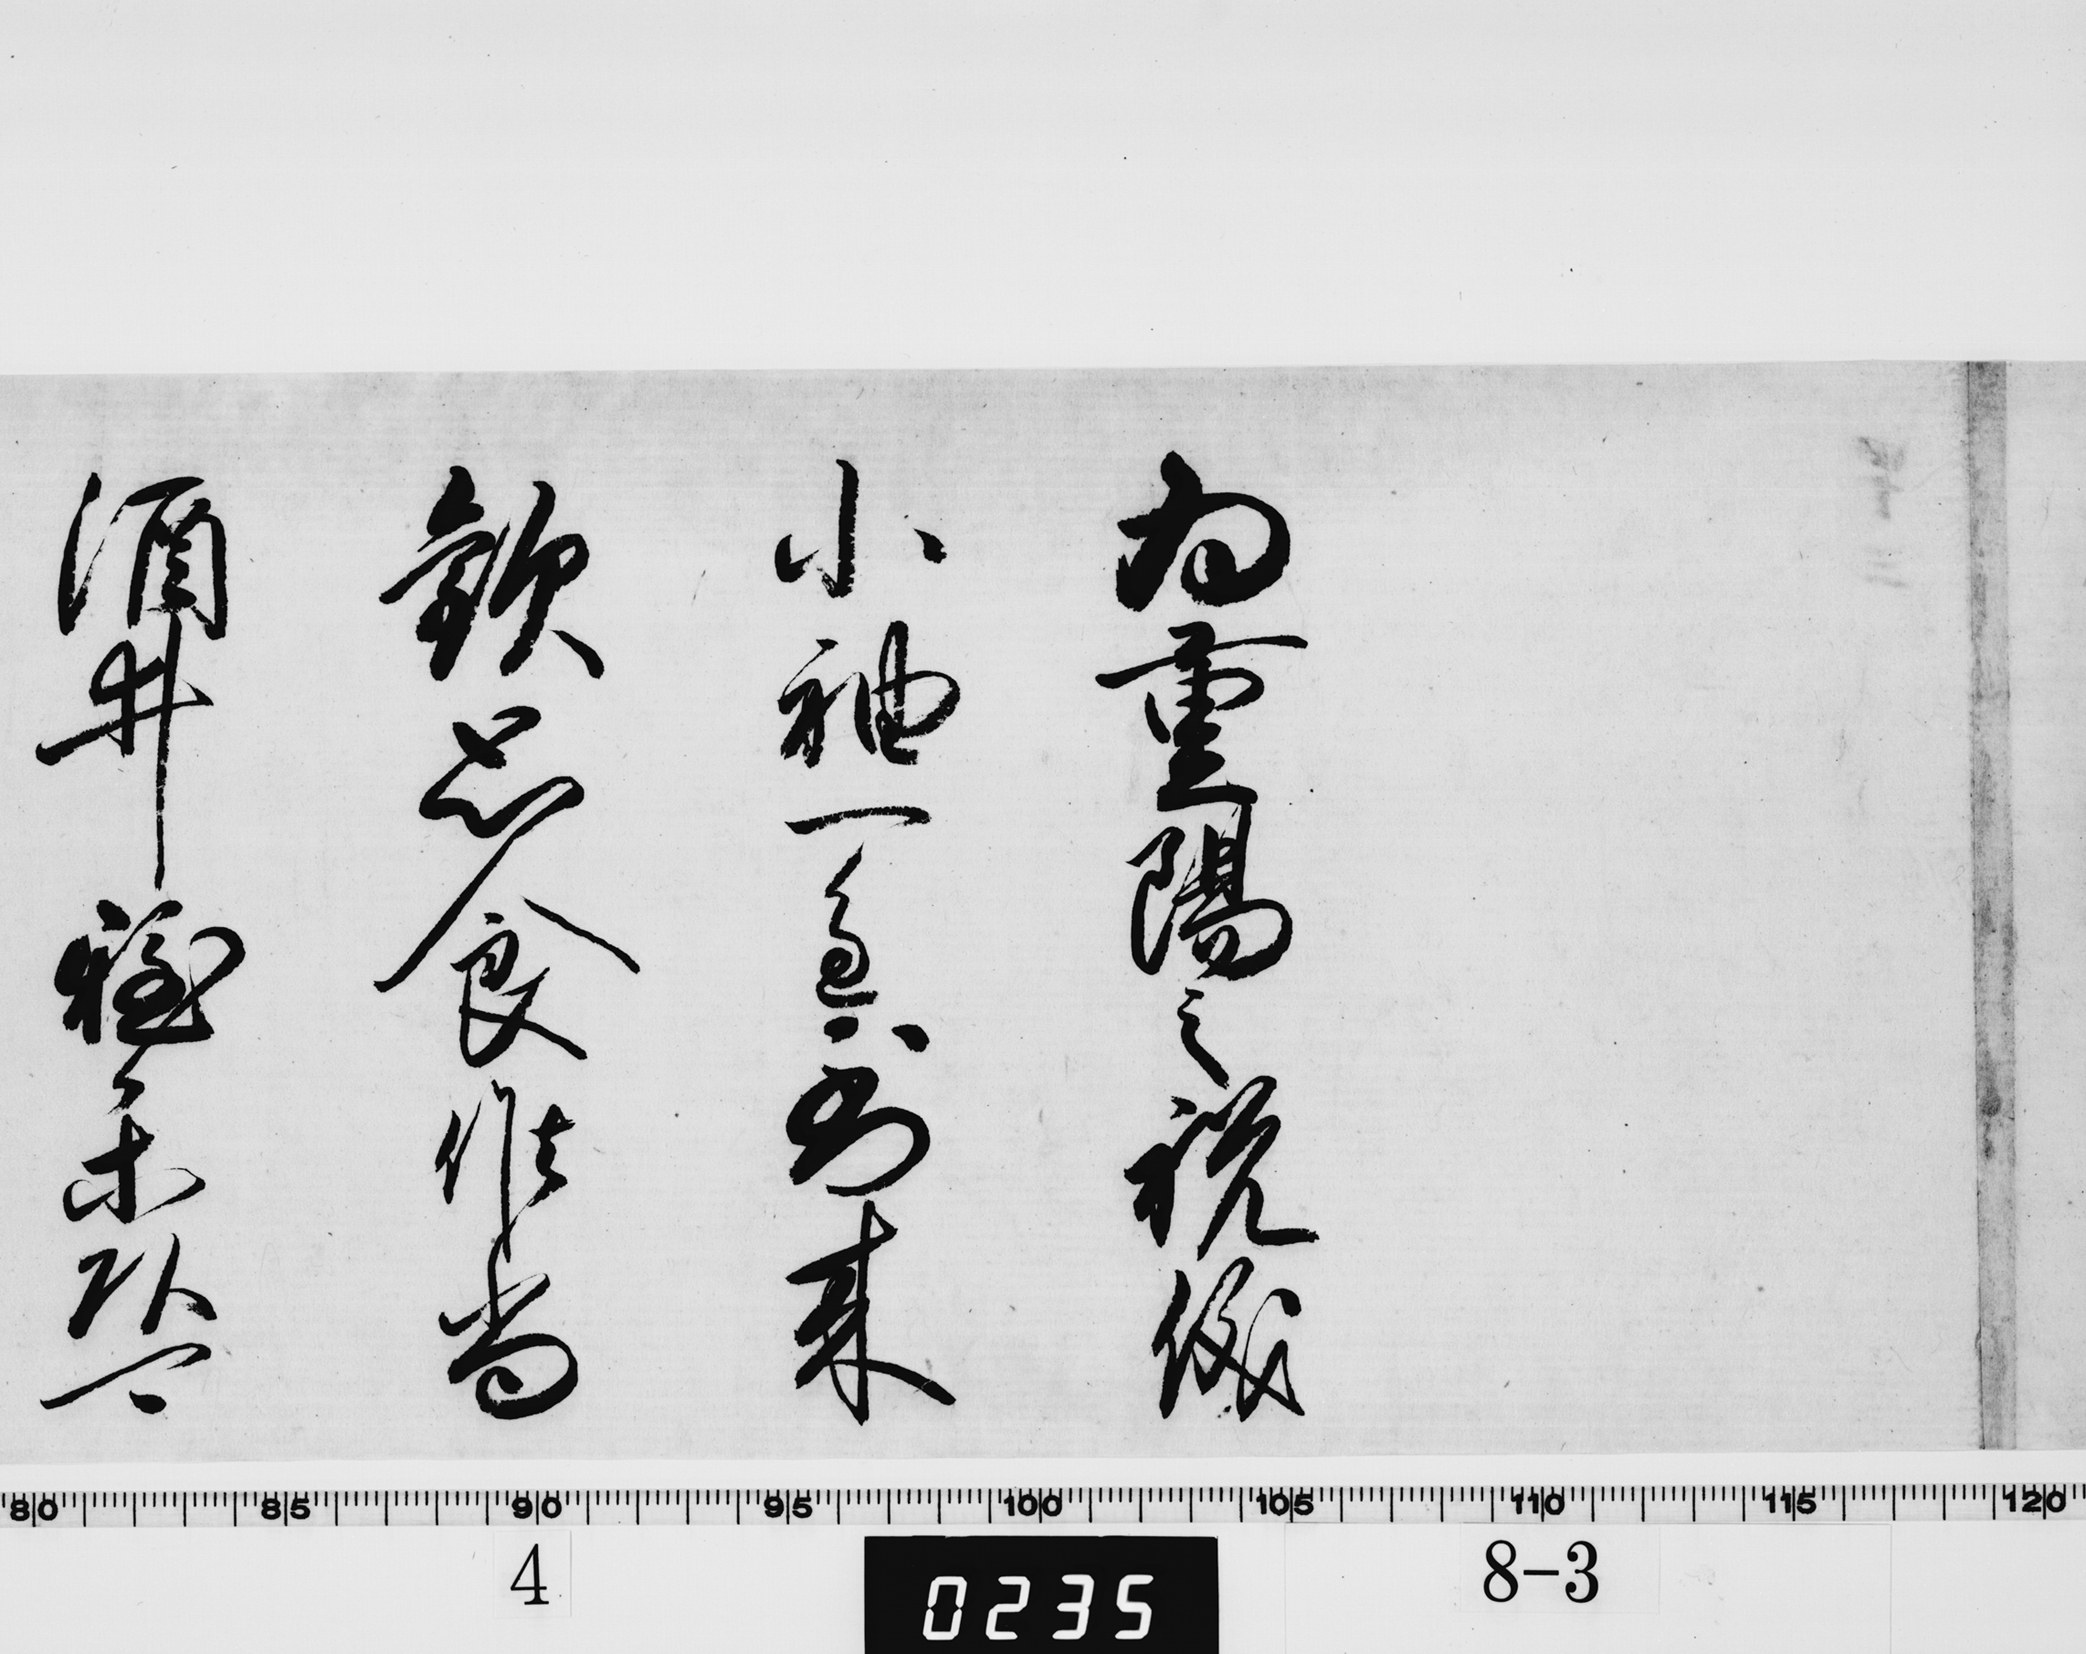 為重陽之祝儀
小袖一重到来
歓思食候尚
酒井雅楽頭可
80 85 90 95 100 105 110 115 120
4
0235
8-3